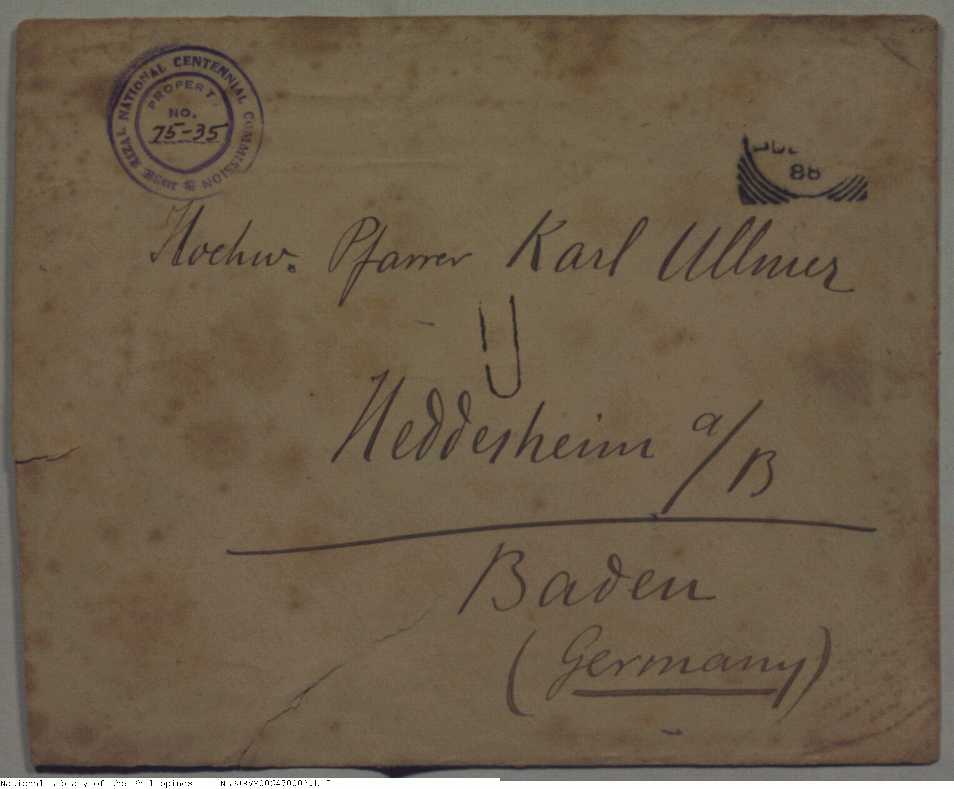 JOSE RIZAL NATIONAL CENTENNIAL COMMISSION
PROPERTY
NO.
75-35
88
Hochw. Pfarrer Karl Ullmer
Heddesheim a/B
Baden
(Germany)
National Library of the Philippines